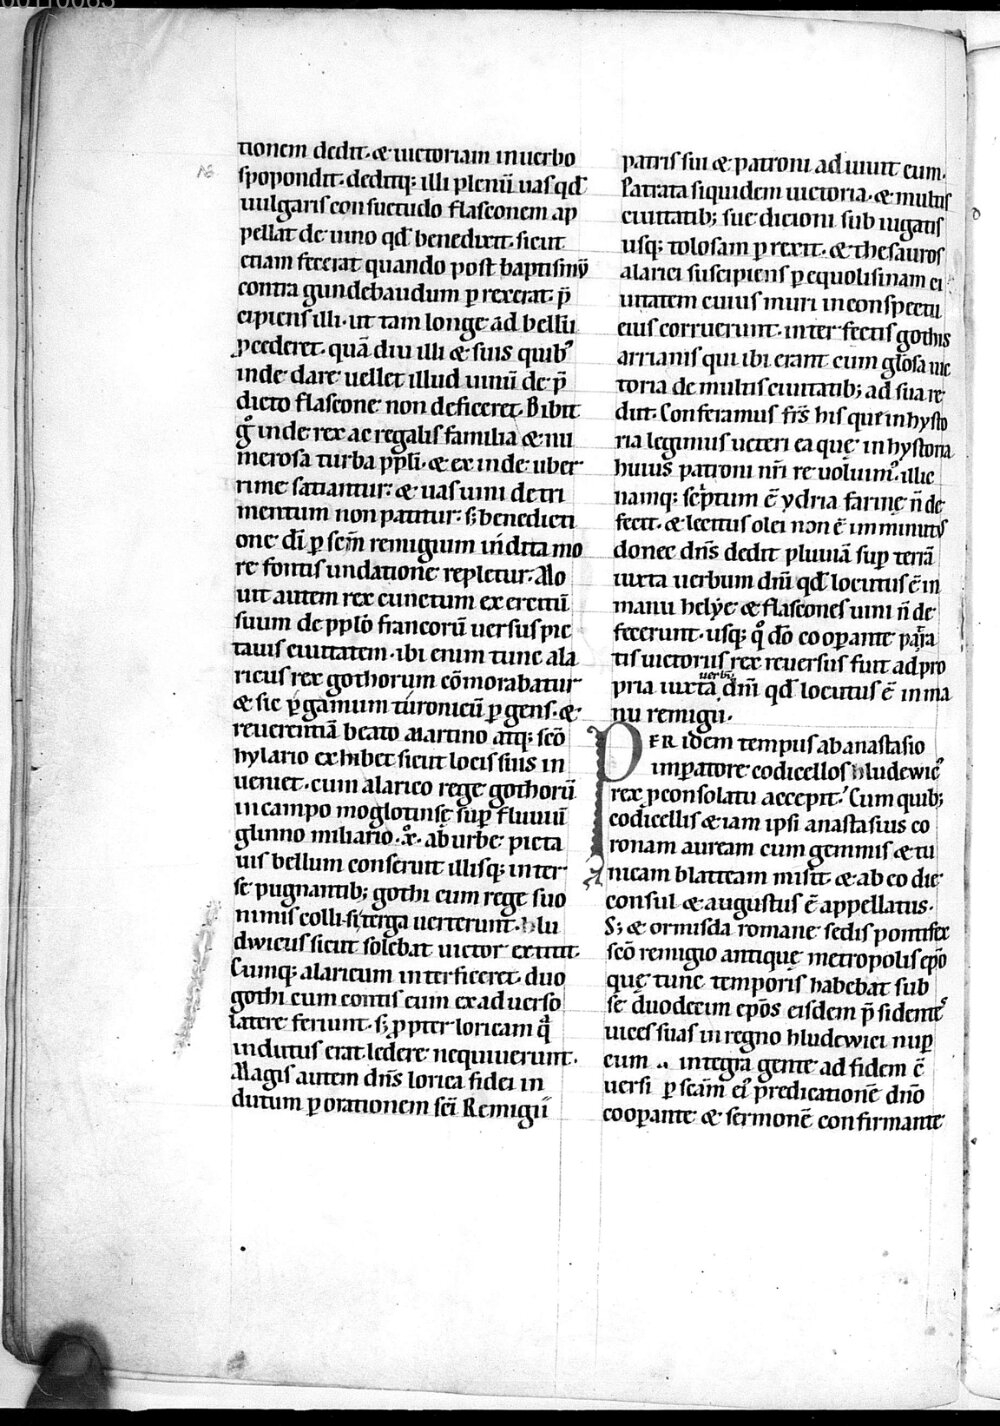 tionem dedit. & uictoriam in uerbo
spopondit. deditq; illi plenū uas qđ
uulgaris consuetudo flasconem ap
pellat de uino qđ benedixit. sicut
etiam fecerat quando post baptismū
contra gundebaudum ꝑrexerat. p̄
cipiens illi. ut tam longe ad bellū
ꝓcederet. quā diu illi & suis quibꝰ
inde dare uellet illud uinū de p̄
dicto flascone non deficeret. Bibit
gͦ inde rex ac regalis familia & nu
merosa turba ppl̄i. & exinde uber
rime satiantur. & uas uini detri
mentum non patitur. s; benedicti
one dī ꝑ sc̄m remigium indita mo
re fontis undatione repletur. Mo
uit autem rex cunctum exercitū
suum de pplo francorū uersus pic
tauis ciuitatem. ibi enim tunc ala
ricus rex gothorum cōmorabatur
& sic ꝑgamum turonicū ꝑgens. &
reuerentiā beato Martino atq; sc̄o
hylario exhibet sicut locis suis in
ueniet. cum alarico rege gothorū
in campo moglotinsę suꝑ fluuiū
glinno miliario .xͦ. ab urbe picta
uis bellum conserunt illisq; inter
se pugnantib; gothi cum rege suo
nimis collisi terga uerterunt. hlu
dwicus sicut solebat uictor extitit.
Cumq; alaricum interficeret. duo
gothi cum contis eum ex aduerso
latere feriunt. s; ꝓpter loricam qᵃ
indutus erat ledere nequiuerunt.
Magis autem dn̄s lorica fidei in
dutum ꝑ orationem sc̄i Remigii
patris sui & patroni adiuuit eum.
Patrata siquidem uictoria. & multis
ciuitatib; sue dicioni subiugatis
usq; tolosam ꝑrexit. & thesauros
alarici suscipiens ꝑ equolisinam ci
uitatem cuius muri in conspectu
eius corruerunt. interfectis gothis
arrianis qui ibi erant cum gl̄osa uic
toria de multis ciuitatib; ad sua re
diit. Conferamus fr̄s his que in hysto
ria legimus ueteri ea quę in hystoria
huius patroni nr̄i reuoluimꝰ. illic
namq; scͥptum ē ydria farinę n̄ de
fecit. & lecitus olei non ē imminutꝰ
donec dn̄s dedit pluuiā suꝑ terrā
iuxta uerbum dn̄i qđ locutus ē in
manu helyę & flascones uini n̄ de
fecerunt. usq; qͦ dō cooꝑante paᵗra
tis uictoriis rex reuersus fuit ad pro
pria iuxta uerbū dn̄i qđ locutus ē in ma
nu remigii.
PER idem tempus ab anastasio
imꝑatore codicellos hludewicꝰ
rex ꝓconsolatu accepit. Cum quib;
codicellis &iam ipsi anastasius co
ronam auream cum gemmis & tu
nicam blatteam misit & ab eo die
consul & augustus ē appellatus.
S; & ormisda romane sedis pontifex
sc̄o remigio antiquę metropolis epo
quę tunc temporis habebat sub
se duodecim ep̄os eisdem p̄sidentͦ
uices suas in regno hludewici nuꝑ
cum .. integra gente ad fidem c̄
uersi ꝑ sc̄am eiꝰ p̄dicationē dn̄o
cooꝑante & sermonē confirmante